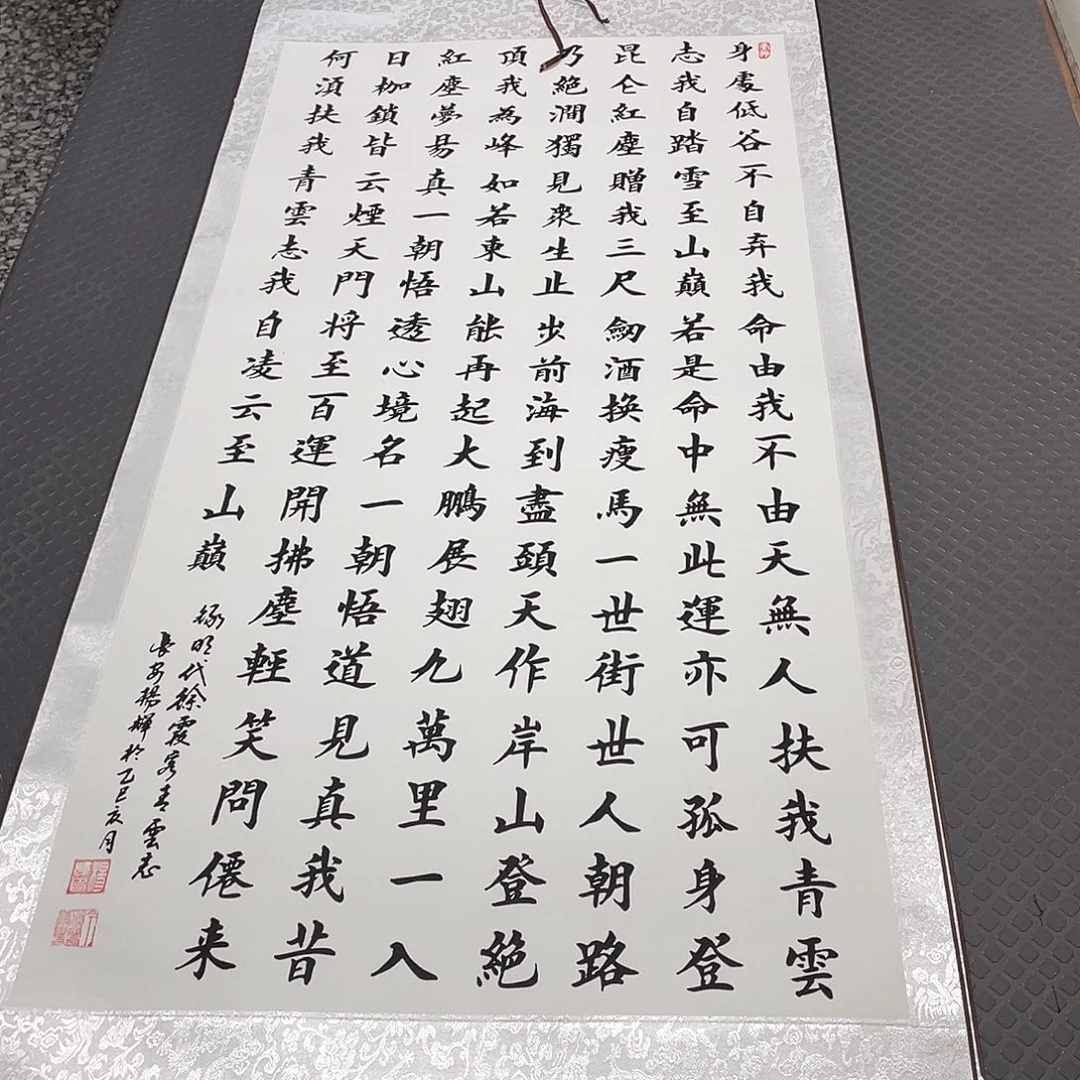 身處低谷不自弃我命由我不由天無人扶我青雲
志我自踏雪至山巔若是命中無此運亦可孤身登
昆仑紅塵贈我三尺劒酒換瘦馬一世街世人朝路
乃絶澗獨見衆生止出前海到盡頭天作岸山登絶
頂我為峰如若東山能再起大鵬展翅九萬里一入
紅塵夢易真一朝悟透心境名一朝悟道見真我昔
日枷鎖皆云煙天門将至百運開拂塵輕笑問僊来
何須扶我青雲志我自凌云至山巔
錄明代徐霞客青雲志
長安楊輝於乙巳亥月